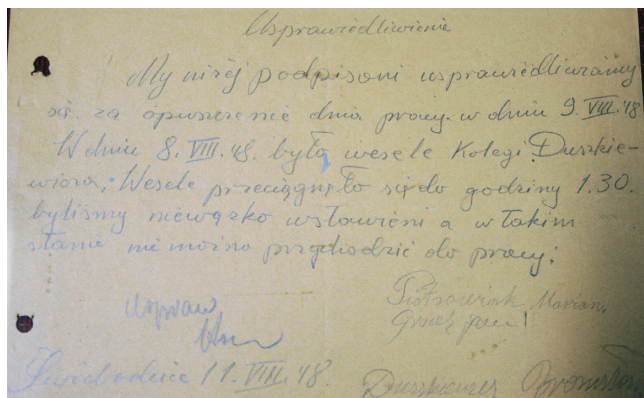 Usprawiedliwienie
My niżej podpisani usprawiedliwiamy
się za opuszczenie dnia pracy w dniu 9. VIII. 48
W dniu 8. VIII. 48. było wesele Kolegi Duszkie-
wicza; Wesele przeciągnęło się do godziny 1.30.
byliśmy niewąsko wstawieni a w takim
stanie nie można przychodzić do pracy.
Piotrowiak Marian,
Uspraw
Świebodzice 11. VIII. 48. Duszkiewicz Bronisław